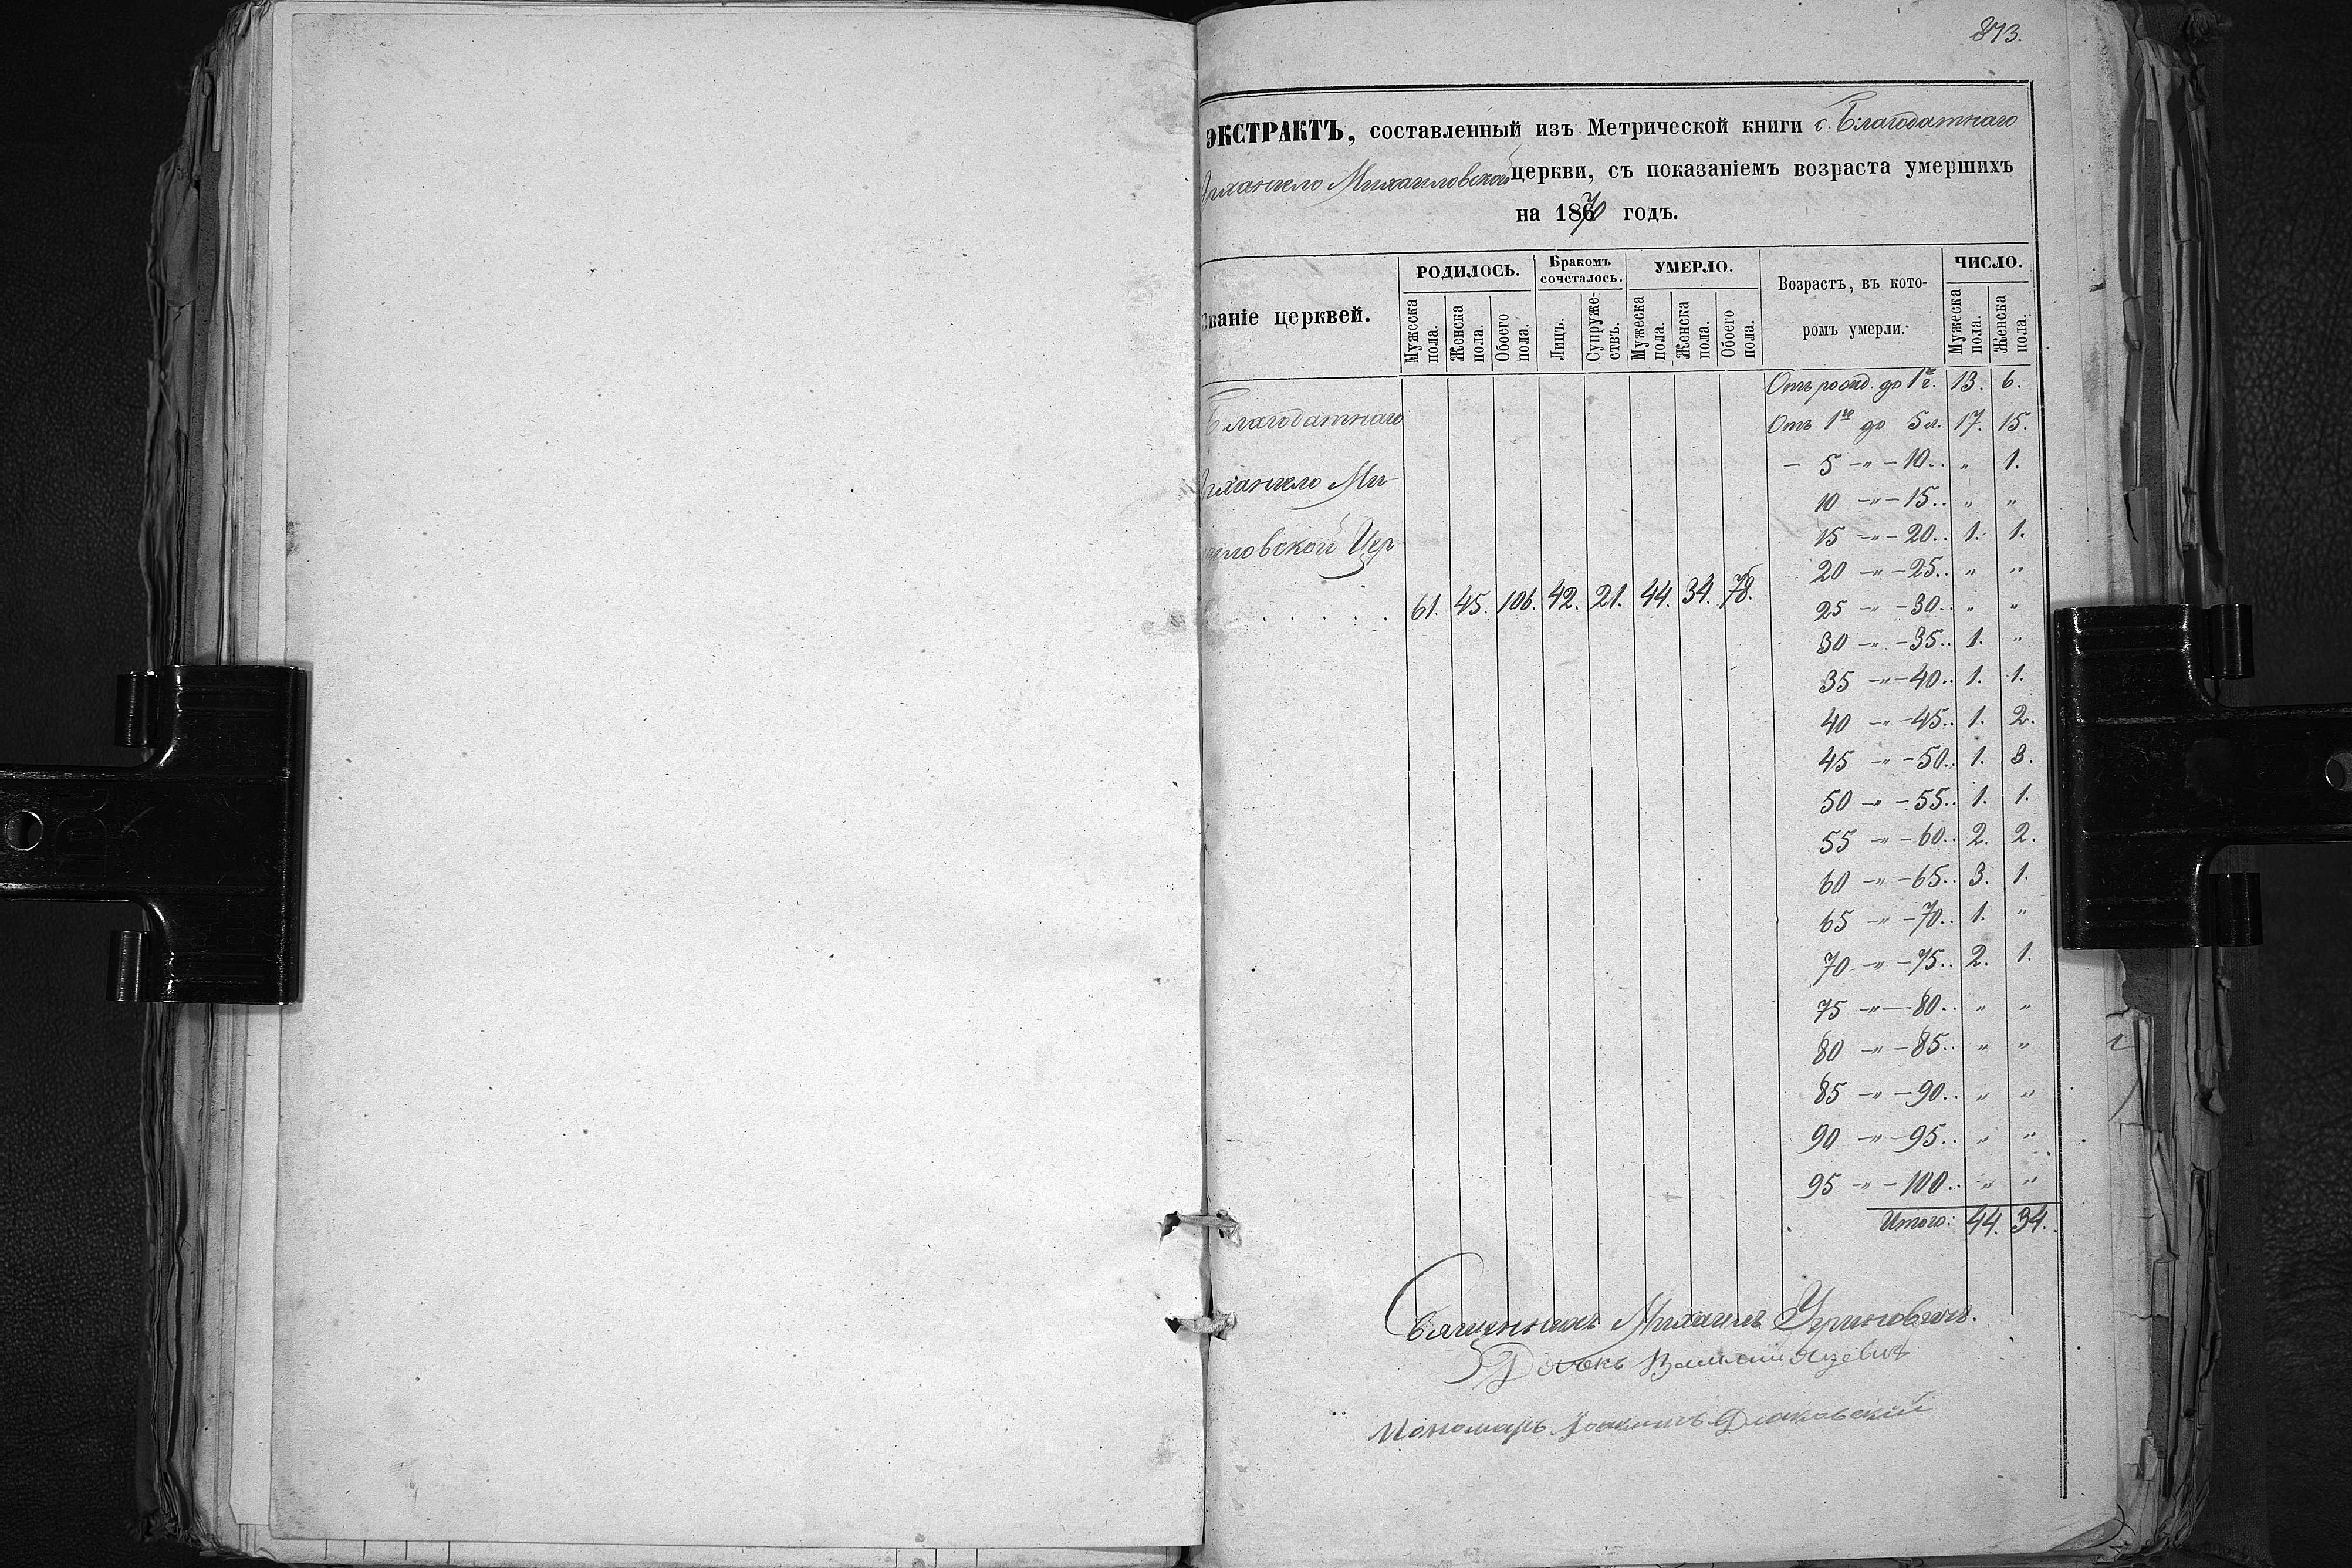 873.
ЭКСТРАКТЪ, составленный изъ Метрической книги с. Благодатнаго
Архангело Михаиловской церкви, съ показаніемъ возраста умершихъ
на 1870 годъ.
званіе церквей.
РОДИЛОСЬ.
Мужеска пола.
Женска пола.
Обоего пола.
Бракомъ сочеталось.
Лицъ.
Супружествъ.
УМЕРЛО.
Мужеска пола.
Женска пола.
Обоего пола.
Возрастъ, въ кото-
ромъ умерли.
ЧИСЛО.
Мужеска пола.
Женска пола.
Благодатнаго
Архангело Ми-
хаиловской Цер-
. . . . . 61. 45. 106. 42. 21. 44. 34. 78.
Отъ рожд. до 1го г. 13. 6.
Отъ 1го до 5 л. 17. 15.
– 5 –„– 10.. „ 1.
10 –„– 15.. „ „
15 –„– 20.. 1. 1.
20 –„– 25.. „ „
25 –„– 30.. „ „
30 –„– 35.. 1. „
35 –„– 40.. 1. 1.
40 –„– 45.. 1. 2.
45 –„– 50.. 1. 3.
50 –„– 55.. 1. 1.
55 –„– 60.. 2. 2.
60 –„– 65.. 3. 1.
65 –„– 70.. 1. „
70 –„– 75.. 2. 1.
75 –„– 80.. „ „
80 –„– 85.. „ „
85 –„– 90.. „ „
90 –„– 95.. „ „
95 –„– 100.. „ „
Итого: 44. 34.
Священникъ Михаилъ Угриновичъ.
Дьякъ Василий
Пономарь Дияковский